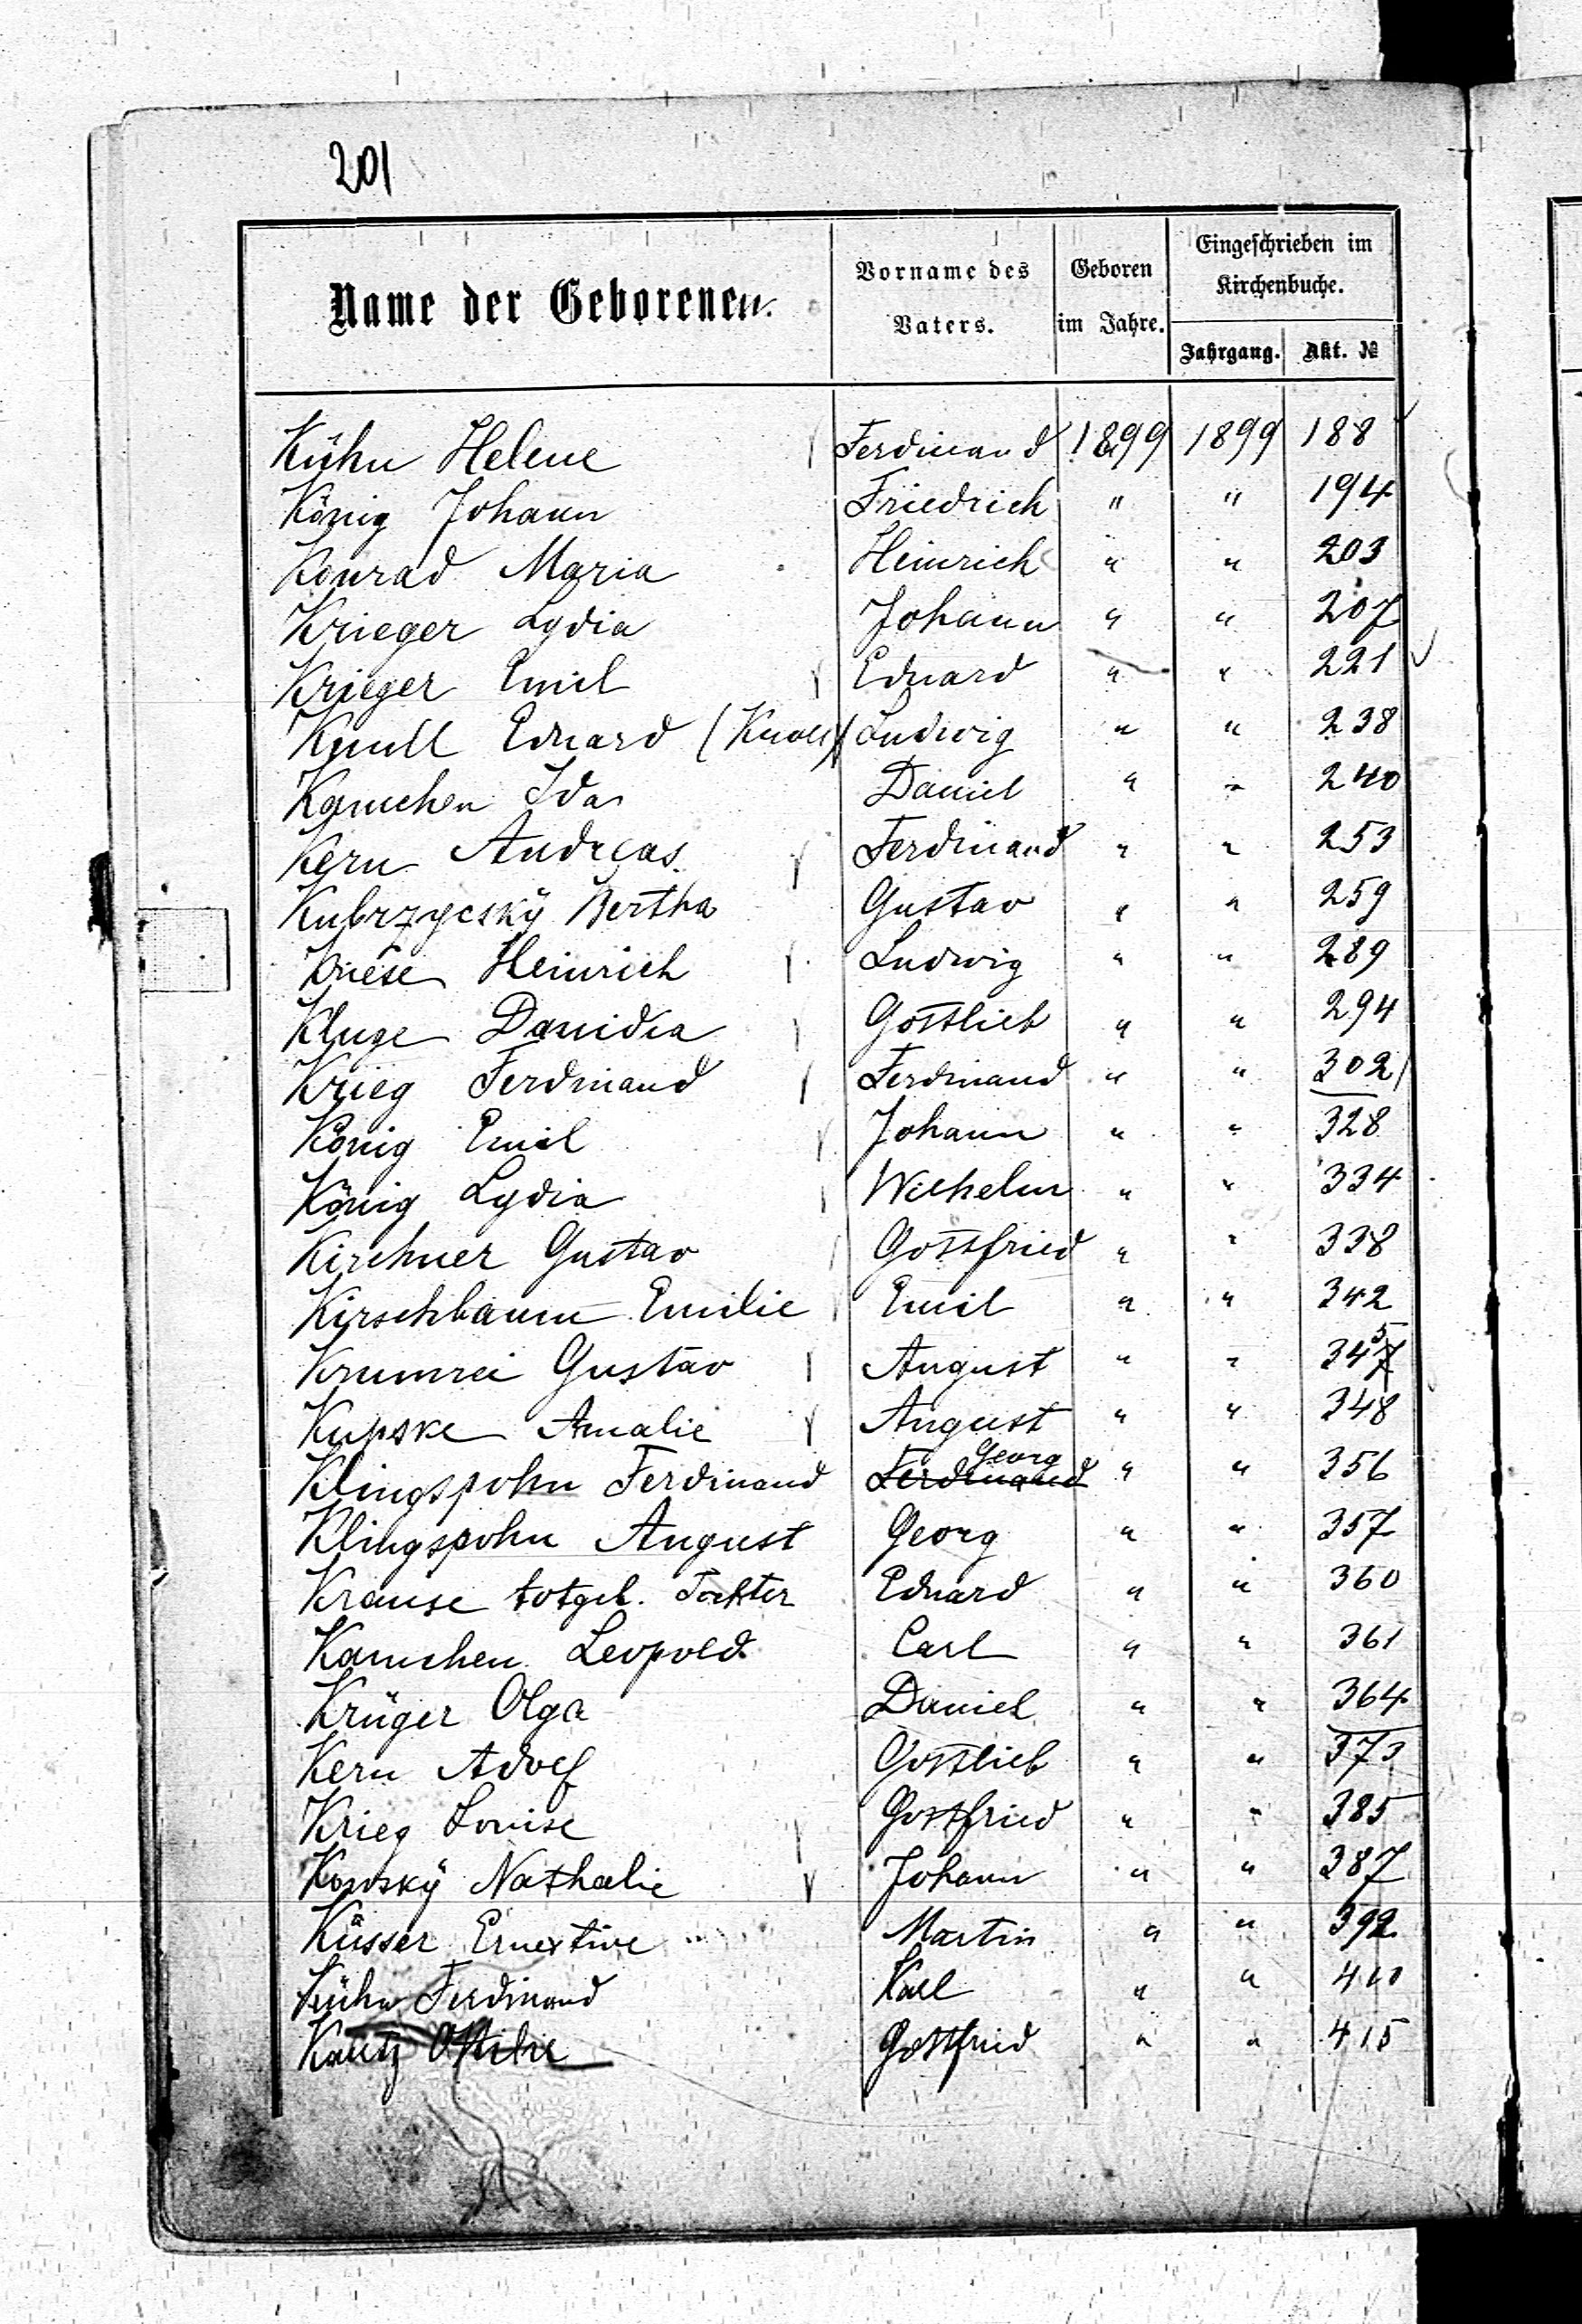 201
Name der Geborenen. Vorname des Vaters. Geboren im Jahre. Eingeschrieben im Kirchenbuche.
Jahrgang. Akt. №
Kühn Helene Ferdinand 1899 1899 188
König Johann Friedrich " " 194
Konrad Maria Heinrich " " 203
Krieger Lydia Johann " " 207
Krieger Emil Eduard " " 221
Knull Eduard (Knoll) Ludwig " " 238
Kamchen Ida Daniel " " 240
Kern Andreas Ferdinand " " 253
Kubrzycský Bertha Gustav " " 259
Kriese Heinrich Ludwig " " 289
Kluge Danidia Gottlieb " " 294
Krieg Ferdinand Ferdinand " " 302
König Emil Johann " " 328
König Lydia Wilhelm " " 334
Kirchner Gustav Gottfried " " 338
Kirschbaum Emilie Emil " " 342
Krumrei Gustav August " " 345
Kupske Amalie August " " 348
Klingspohn Ferdinand Ferdinand Georg " " 356
Klingspohn August Georg " " 357
Krause totgeb. Tochter Eduard " " 360
Kamchen Leopold Carl " " 361
Krüger Olga Daniel " " 364
Kern Adolf Gottlieb " " 373
Krieg Louise Gottfried " " 385
Konský Nathalie Johann " " 387
Küsser Ernestine Martin " " 392
Kühn Ferdinand Karl " " 410
Kautz Ottilie Gottfried " " 415